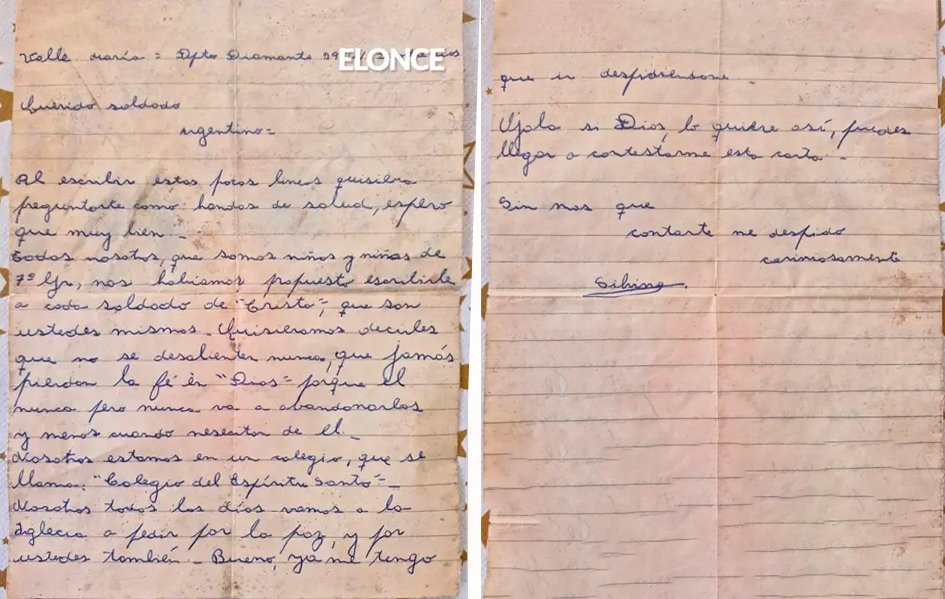 Valle María = Dpto Diamante 29
ELONCE
Querido soldado
argentino =
Al escribir estas pocas lineas quisiera
preguntarte como: handas de salud, espero
que muy bien._
Todos nosotros, que somos niños y niñas de
7º Gr, nos habiamos propuesto escribirle
a cada soldado de "Cristo", que son
ustedes mismos_ Quisieramos decirles
que no se desalienten nunca, que jamás
pierdan la fé en "Dios" = porque el
nunca pero nunca va a abandonarlos
y menos cuando nesecitan de el._
Nosotros estamos en un colegio, que se
llama: "Colegio del Espíritu Santo" =_
Nosotros todos los días vamos a la
Iglecia a pedir por la paz, y por
ustedes también_ Bueno, ya me tengo
que ir despidiendome_
Ojala si Dios, lo quiere así, puedas
llegar a contestarme esta carta_
Sin mas que
contarte me despido
cariniosamente
Silvina.